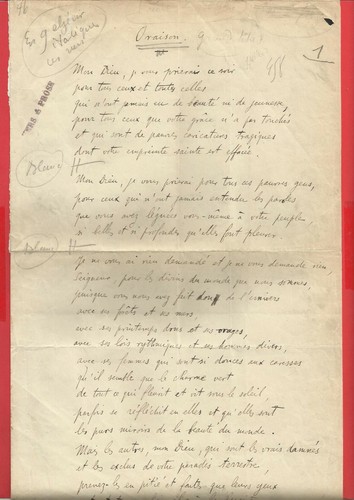 Oraison.
1
Mon Dieu, je vous prierai ce soir
pour tous ceux et toutes celles
qui n'ont jamais eu de beauté ni de jeunesse,
pour tous ceux que votre grâce n'a pas touchés
et qui sont de pauvres caricatures tragiques
dont votre empreinte sainte est effacée.
Blanc
Mon Dieu, je vous prierai pour tous ces pauvres gens,
pour ceux qui n'ont jamais entendu les paroles
que vous avez léguées vous-même à votre peuple
si belles et si profondes qu'elles font pleurer.
Blanc
Je ne vous ai rien demandé et je ne vous demande rien,
Seigneur, pour les divins du monde que nous sommes,
puisque vous nous avez fait don de l'univers
avec ses forêts et ses mers,
avec ses printemps doux et ses orages,
avec ses lois rythmiques et ses hommes divers,
avec ses femmes qui sont si douces aux caresses
qu'il semble que le charme vert
de tout ce qui fleurit et vit sous le soleil
parfois se réfléchit en elles et qu'elles sont
les purs miroirs de la beauté du monde.
Mais ces autres, mon Dieu, qui sont les vrais damnés
et les exclus de votre paradis terrestre,
prenez-les en pitié et faites que leurs yeux